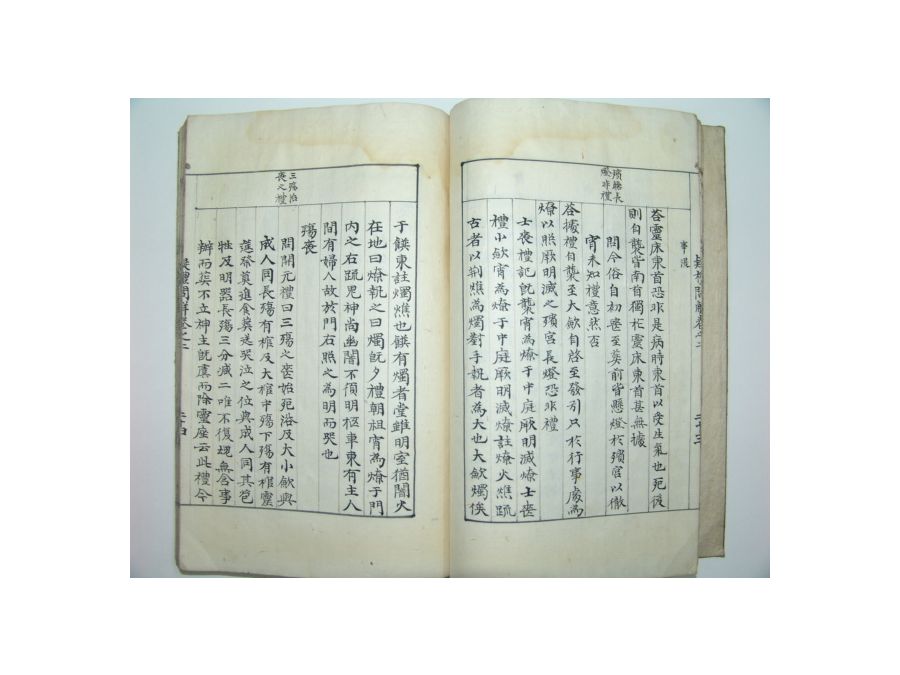 疑禮問解卷之二
二十三
事後
答靈床東首恐非是病時東首以受生氣也死後
則自襲皆南首獨於靈床東首甚無據
殯廳長
燈非禮
問今俗自初喪至葬前皆懸燈於殯宮以徹
宵未知禮意然否
答據禮自襲至大斂自啓至發引只於行事處爲
燎以照厥明滅之殯宮長燈恐非禮
士喪禮記旣襲宵爲燎于中庭厥明滅燎士喪
禮小斂宵爲燎于中庭厥明滅燎註燎火燋疏
古者以荊燋爲燭對手執者爲大也大斂燭俟
于饌東註燭燋也饌有燭者堂雖明室猶闇火
在地曰燎執之曰燭旣夕禮朝祖宵爲燎于門
內之右疏鬼神尚幽闇不須明柩車東有主人
間有婦人故於門右照之爲明而哭也
三殤治
喪之禮
殤喪
問開元禮曰三殤之喪始死浴及大小斂與
成人同長殤有棺及大棺中殤下殤有棺靈
筵祭奠進食葬送哭泣之位與成人同其苞
牲及明器長殤三分減二唯不復魂無含事
辦而葬不立神主旣虞而除靈座云此禮今
疑禮問解卷之二
二十四